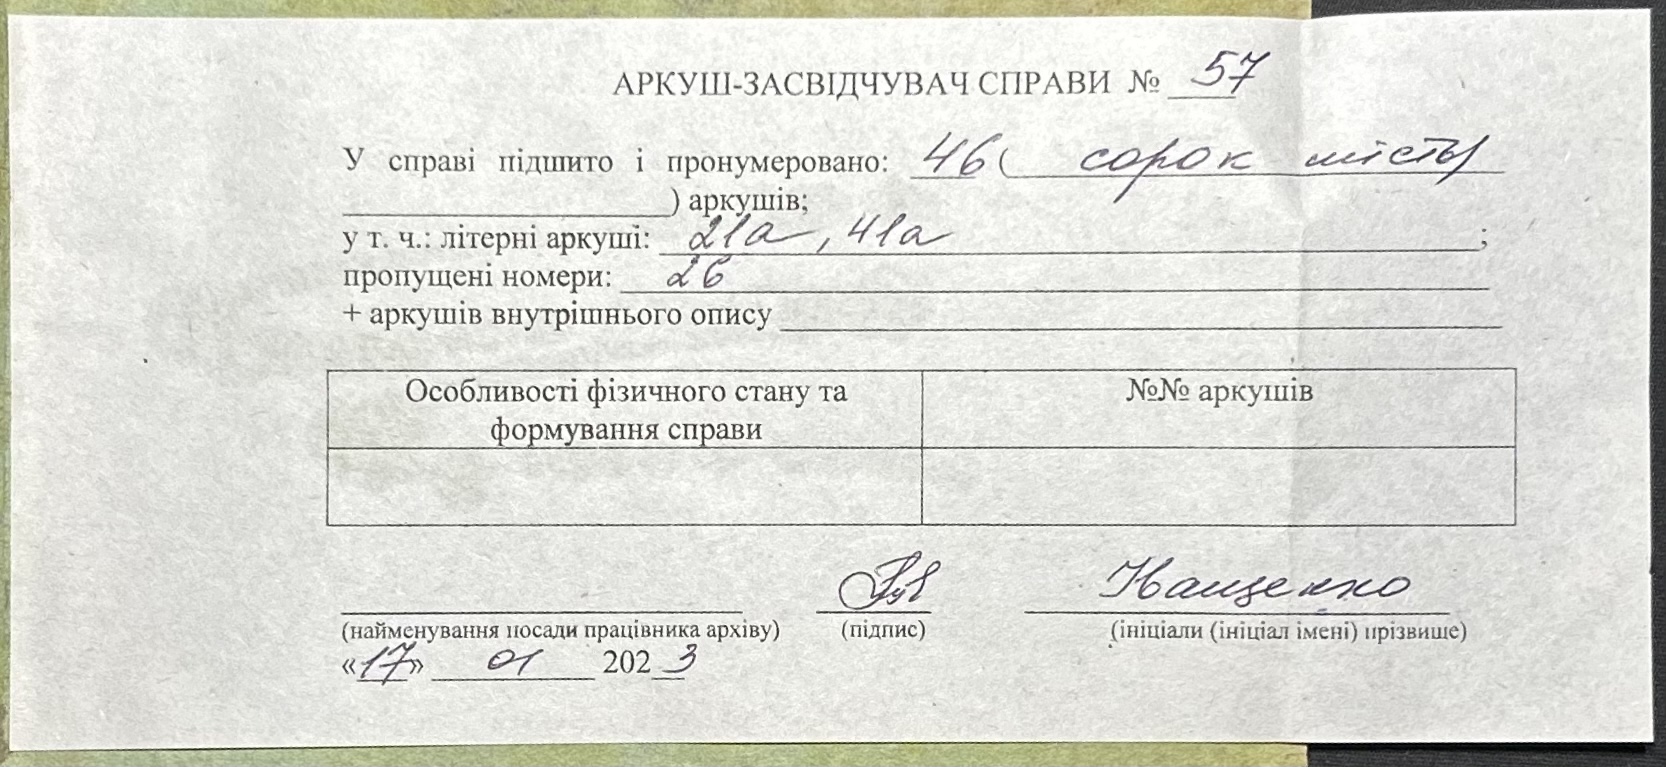 АРКУШ-ЗАСВІДЧУВАЧ СПРАВИ № 57
У справі підшито і пронумеровано: 46 ( сорок шість)
) аркушів;
у т. ч.: літерні аркуші: 21а, 41а ;
пропущені номери: 26
+ аркушів внутрішнього опису
Особливості фізичного стану та формування справи
№№ аркушів
(найменування посади працівника архіву) (підпис) (ініціали (ініціал імені) прізвище)
«17» 01 2023